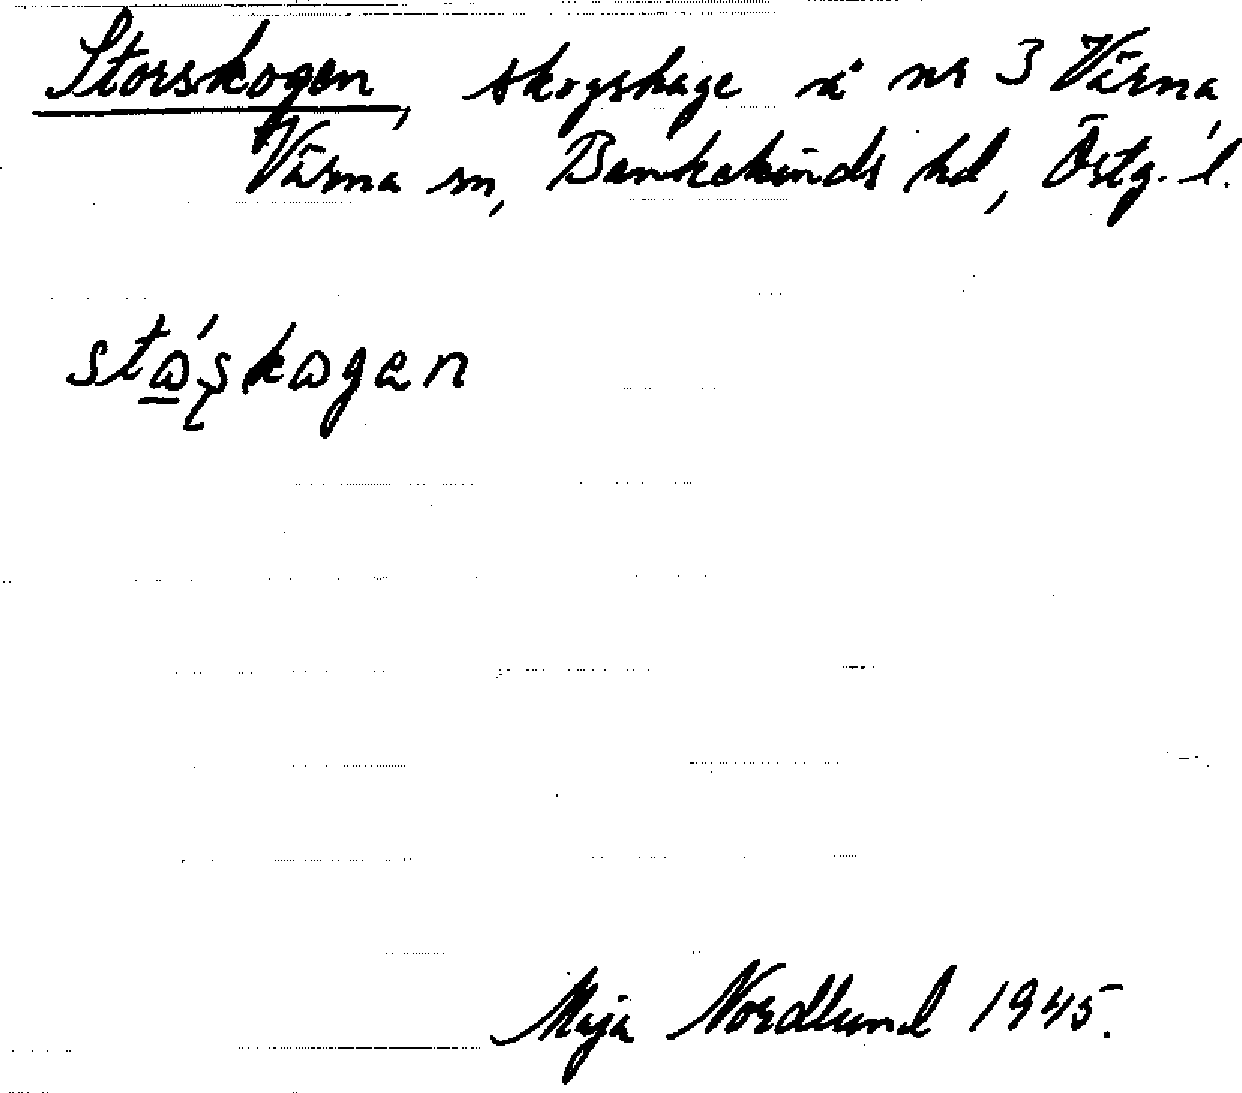 Storskogen, skogshage å nr 3 Värna,
Värna sn, Bankekinds hd, Östg. l.
stɷ́ʂkɷgen
Maja Nordlund 1945.